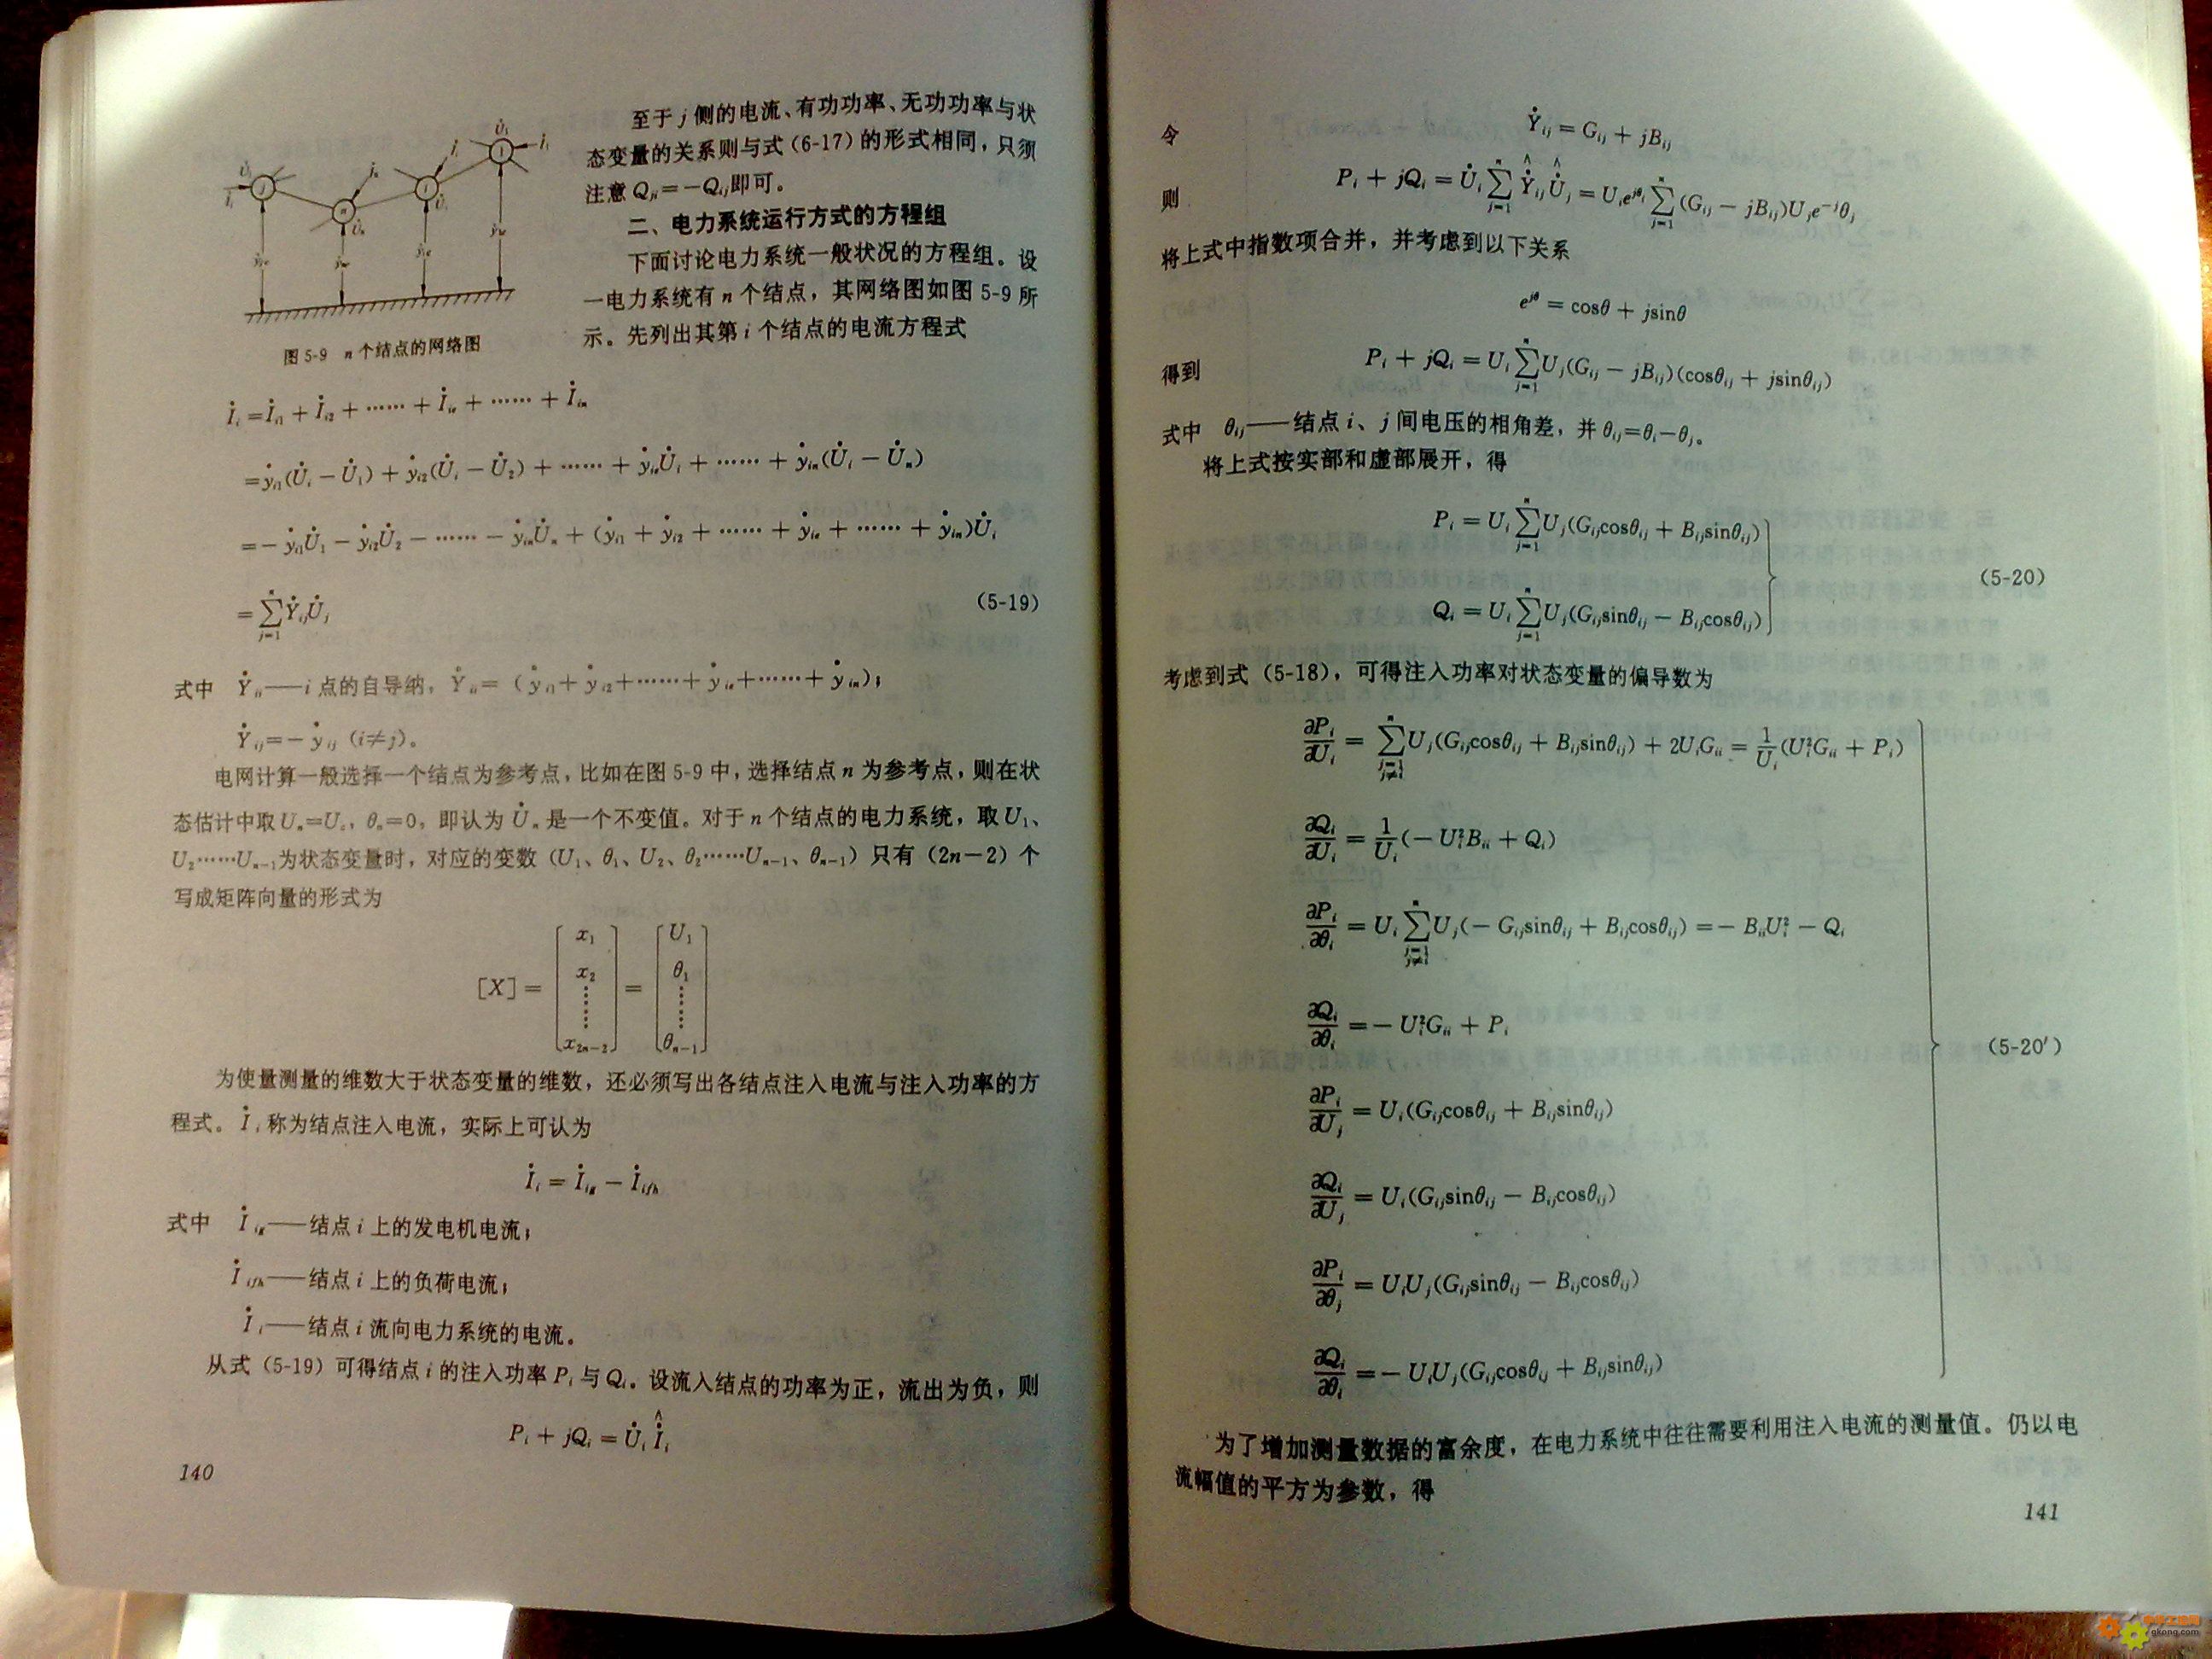 至于 j 侧的电流、有功功率、无功功率与状
态变量的关系则与式(6-17)的形式相同，只须
注意 Qⱼᵢ=-Qᵢⱼ即可。
二、电力系统运行方式的方程组
下面讨论电力系统一般状况的方程组。设
一电力系统有 n 个结点，其网络图如图 5-9 所
示。先列出其第 i 个结点的电流方程式
图 5-9 n 个结点的网络图
İᵢ = İᵢ₁ + İᵢ₂ + …… + İᵢₑ + …… + İᵢₙ
= ẏᵢ₁(U̇ᵢ - U̇₁) + ẏᵢ₂(U̇ᵢ - U̇₂) + …… + ẏᵢₑU̇ᵢ + …… + ẏᵢₙ(U̇ᵢ - U̇ₙ)
= - ẏᵢ₁U̇₁ - ẏᵢ₂U̇₂ - …… - ẏᵢₙU̇ₙ + (ẏᵢ₁ + ẏᵢ₂ + …… + ẏᵢₑ + …… + ẏᵢₙ)U̇ᵢ
= ∑ⱼ₌₁ⁿ ẎᵢⱼU̇ⱼ (5-19)
式中 Ẏᵢᵢ——i 点的自导纳，Ẏᵢᵢ= (ẏᵢ₁+ẏᵢ₂+……+ẏᵢₑ+……+ẏᵢₙ)；
Ẏᵢⱼ=-ẏᵢⱼ (i≠j)。
电网计算一般选择一个结点为参考点，比如在图 5-9 中，选择结点 n 为参考点，则在状
态估计中取 Uₙ=U꜀，θₙ=0，即认为 U̇ₙ 是一个不变值。对于 n 个结点的电力系统，取 U₁、
U₂……Uₙ₋₁为状态变量时，对应的变数（U₁、θ₁、U₂、θ₂……Uₙ₋₁、θₙ₋₁）只有（2n-2）个
写成矩阵向量的形式为
[X] = [x₁ x₂ …… x₂ₙ₋₂] = [U₁ θ₁ …… θₙ₋₁]
为使量测量的维数大于状态变量的维数，还必须写出各结点注入电流与注入功率的方
程式。İᵢ 称为结点注入电流，实际上可认为
İᵢ = İ_ig - İ_ifh
式中 İ_ig——结点 i 上的发电机电流；
İ_ifh——结点 i 上的负荷电流；
İᵢ——结点 i 流向电力系统的电流。
从式（5-19）可得结点 i 的注入功率 Pᵢ 与 Qᵢ。设流入结点的功率为正，流出为负，则
Pᵢ + jQᵢ = U̇ᵢ Î̇ᵢ
140
令 Ẏᵢⱼ = Gᵢⱼ + jBᵢⱼ
则 Pᵢ + jQᵢ = U̇ᵢ∑ⱼ₌₁ⁿ Ŷ̇ᵢⱼÛ̇ⱼ = Uᵢe^{jθᵢ}∑ⱼ₌₁ⁿ(Gᵢⱼ - jBᵢⱼ)Uⱼe^{-j}θⱼ
将上式中指数项合并，并考虑到以下关系
e^{jθ} = cosθ + jsinθ
得到 Pᵢ + jQᵢ = Uᵢ∑ⱼ₌₁ⁿUⱼ(Gᵢⱼ - jBᵢⱼ)(cosθᵢⱼ + jsinθᵢⱼ)
式中 θᵢⱼ——结点 i、j 间电压的相角差，并 θᵢⱼ=θᵢ-θⱼ。
将上式按实部和虚部展开，得
Pᵢ = Uᵢ∑ⱼ₌₁ⁿUⱼ(Gᵢⱼcosθᵢⱼ + Bᵢⱼsinθᵢⱼ)
(5-20)
Qᵢ = Uᵢ∑ⱼ₌₁ⁿUⱼ(Gᵢⱼsinθᵢⱼ - Bᵢⱼcosθᵢⱼ)
考虑到式（5-18），可得注入功率对状态变量的偏导数为
∂Pᵢ/∂Uᵢ = ∑ⱼ₌₁,ⱼ≠ᵢⁿ Uⱼ(Gᵢⱼcosθᵢⱼ + Bᵢⱼsinθᵢⱼ) + 2UᵢGᵢᵢ = 1/Uᵢ(Uᵢ²Gᵢᵢ + Pᵢ)
∂Qᵢ/∂Uᵢ = 1/Uᵢ(- Uᵢ²Bᵢᵢ + Qᵢ)
∂Pᵢ/∂θᵢ = Uᵢ∑ⱼ₌₁,ⱼ≠ᵢⁿ Uⱼ(- Gᵢⱼsinθᵢⱼ + Bᵢⱼcosθᵢⱼ) = - BᵢᵢUᵢ² - Qᵢ
∂Qᵢ/∂θᵢ = - Uᵢ²Gᵢᵢ + Pᵢ
(5-20′)
∂Pᵢ/∂Uⱼ = Uᵢ(Gᵢⱼcosθᵢⱼ + Bᵢⱼsinθᵢⱼ)
∂Qᵢ/∂Uⱼ = Uᵢ(Gᵢⱼsinθᵢⱼ - Bᵢⱼcosθᵢⱼ)
∂Pᵢ/∂θⱼ = UᵢUⱼ(Gᵢⱼsinθᵢⱼ - Bᵢⱼcosθᵢⱼ)
∂Qᵢ/∂θᵢ = - UᵢUⱼ(Gᵢⱼcosθᵢⱼ + Bᵢⱼsinθᵢⱼ)
为了增加测量数据的富余度，在电力系统中往往需要利用注入电流的测量值。仍以电
流幅值的平方为参数，得
141
gkong.com